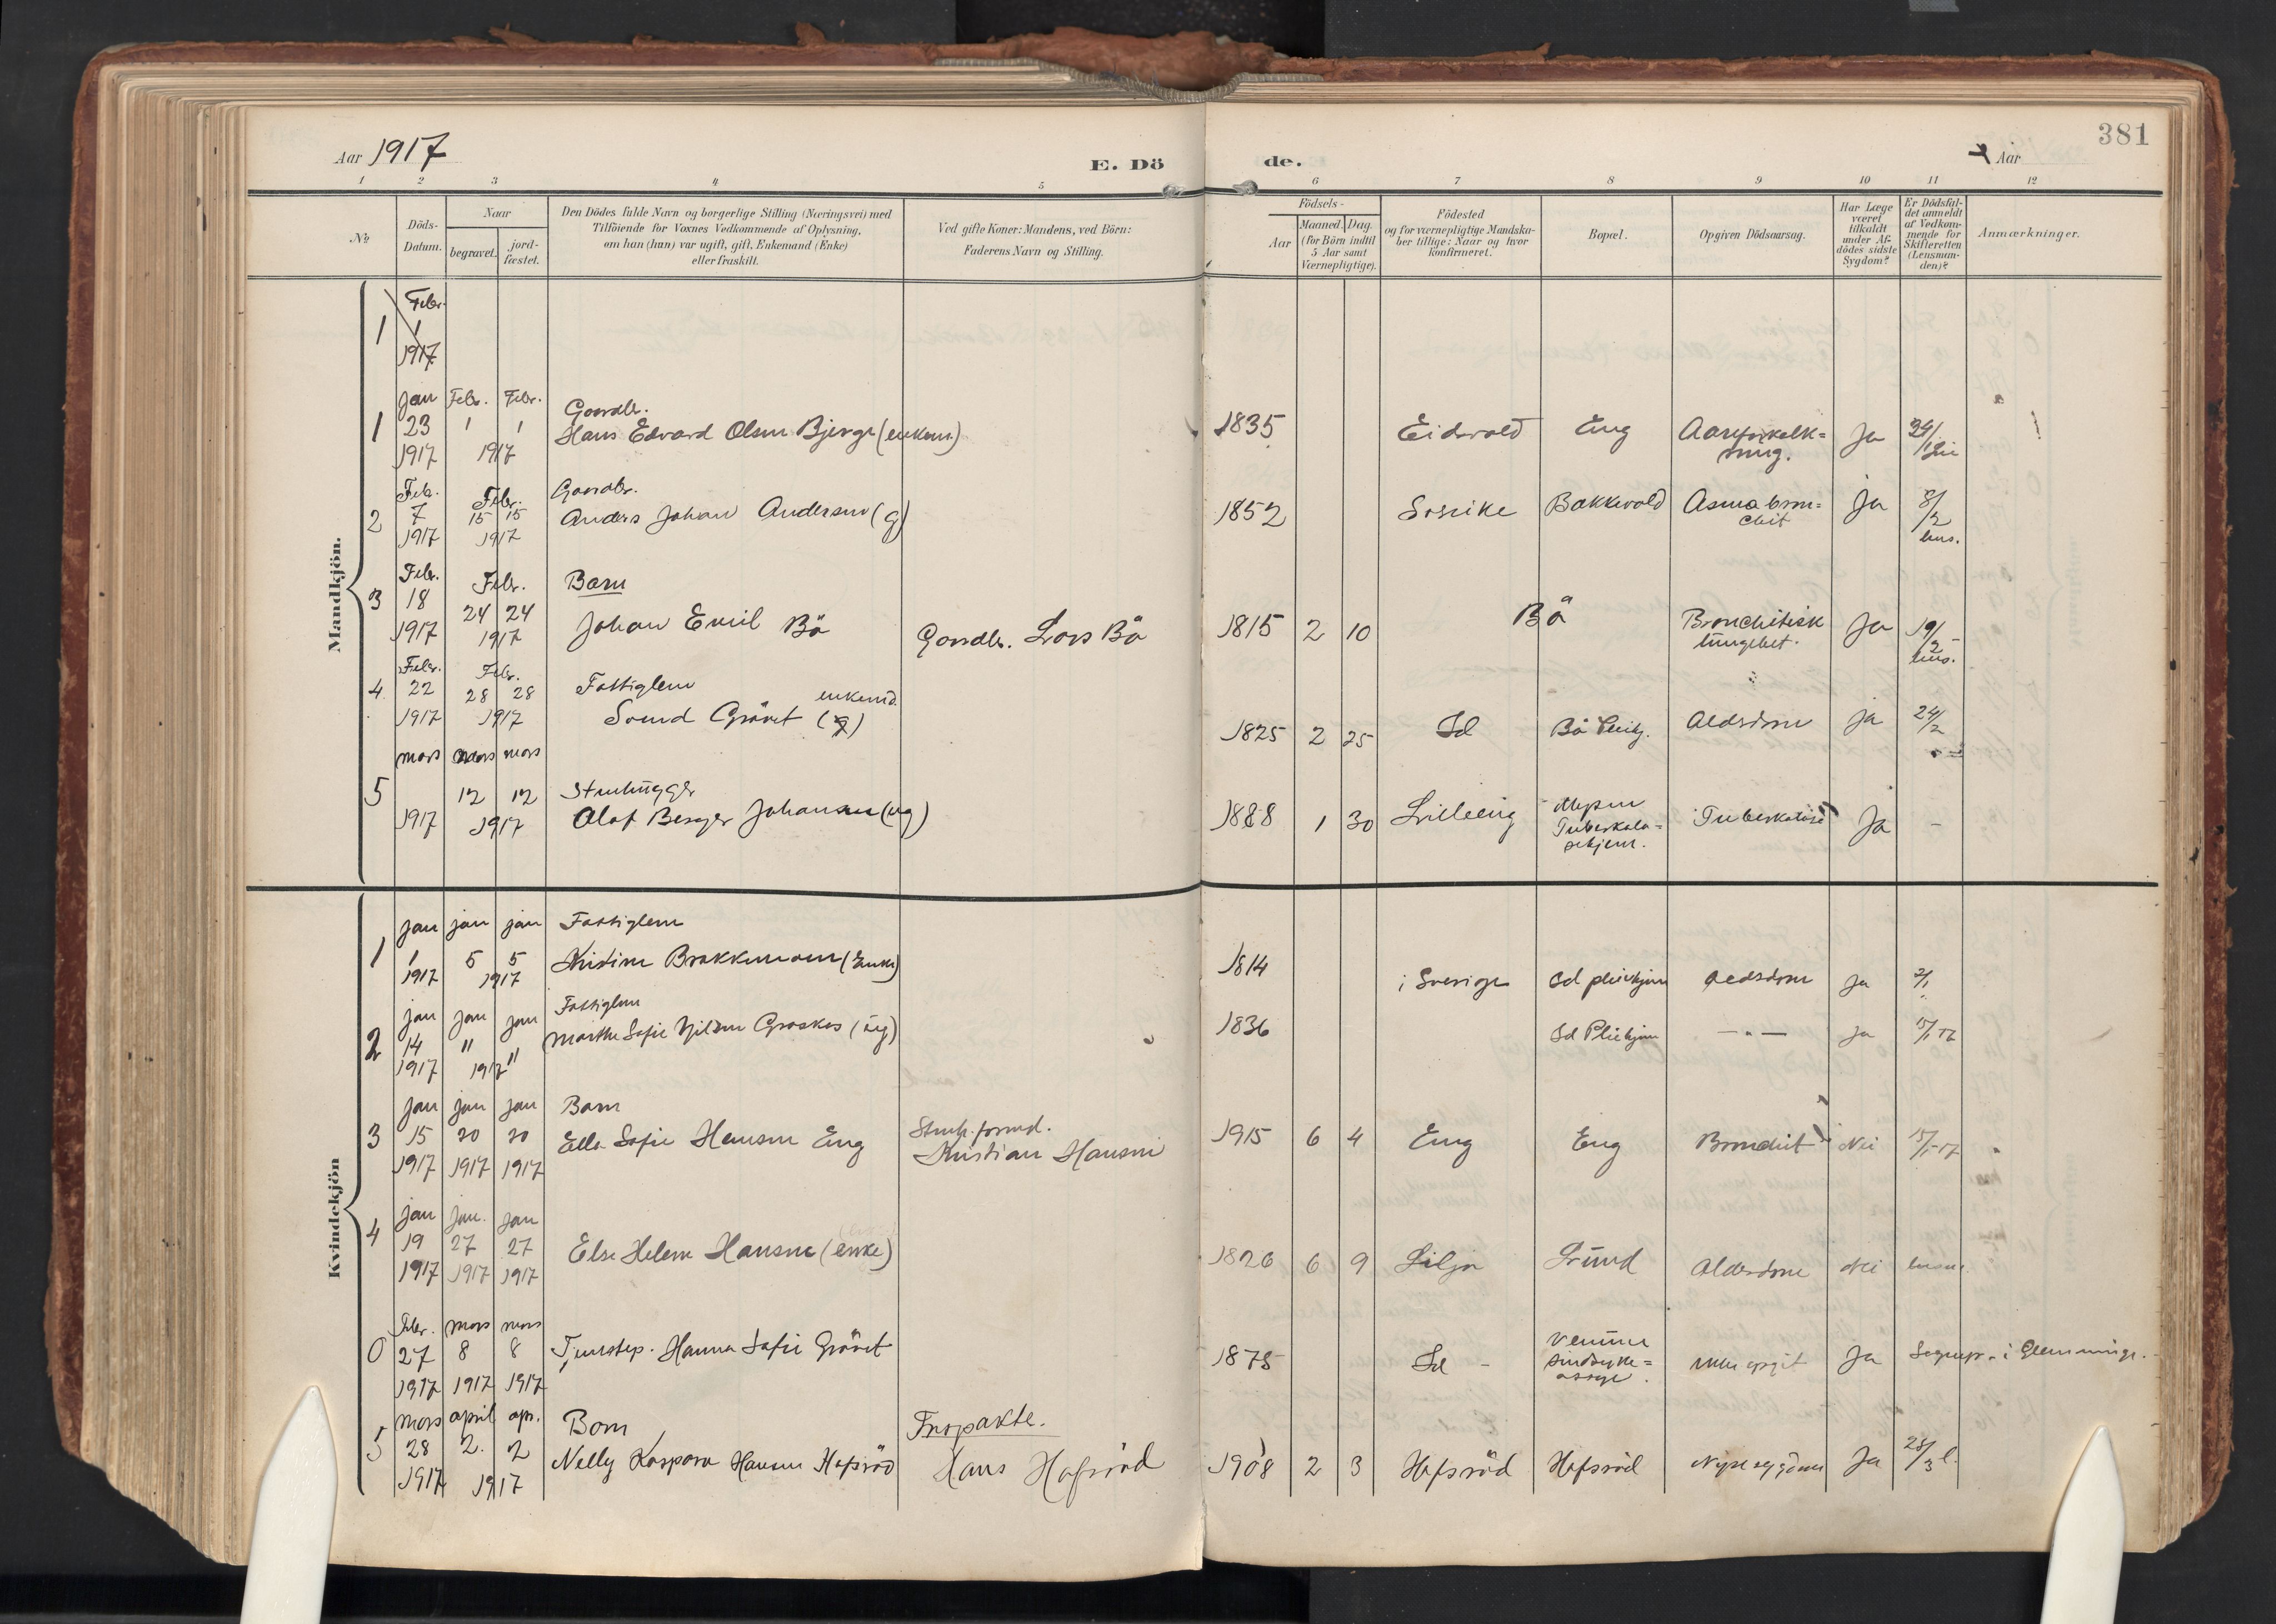 Aar 1917
E. Dö
de.
Aar
381
1 2 3 4 5 6 7 8 9 10 11 12
№
Döds-
Datum.
Naar
begravet.
jord-
fæstet.
Den Dödes fulde Navn og borgerlige Stilling (Næringsvei) med
Tilföiende for Voxnes Vedkommende af Oplysning,
om han (hun) var ugift, gift, Enkemand (Enke)
eller fraskilt.
Ved gifte Koner: Mandens, ved Börn:
Faderens Navn og Stilling.
Födsels-
Aar
Maaned. Dag.
(for Börn indtil
5 Aar samt
Værnepligtige).
Födested
og for værnepligtige Mandska-
ber tillige: Naar og hvor
konfirmeret.
Bopæl.
Opgiven Dödsaarsag.
Har Læge
været
tilkaldt
under Af-
dödes sidste
Sygdom?
Er Dödsfal-
det anmeldt
af Vedkom-
mende for
Skifteretten
(Lensman-
den)?
Anmærkninger.
Mandkjön.
1 Febr. 1 1917
1 Jan 23 1917 Febr. 1 Febr. 1 1917
Gaardbr.
Hans Edvard Olsen Bjerge (enkem.)
1835 Eidsvold Eng Aareforkalk=
ning. Ja 24/1
2 Feb. 7 1917 Febr. 15 15 1917
Gaardbr.
Anders Johan Andersen (g)
1852 Bakkevold Asma bron=
chit Ja 8/2
lens.
3 Febr. 18 1917 Febr. 24 24 1917
Barn
Johan Emil Bö
Gaardbr. Lars Bö
1815 2 10 Bö Bronchitisk
lungebet. Ja 19/2
lens.
4 Febr. 22 1917 Febr. 28 28 1917
Fattiglem
enkemd.
Svend Grövet (g)
1825 2 25 Id Bö Aldsdom Ja 24/2
5 mars 1917 mars 12 mars 12 1917
Stenhugger
Olaf Berger Johansen (ug)
1888 1 30 Lilleeng
Tuberkulo=
sehjem. Tuberkulose Ja -
Kvindekjön
1 jan 1 1917 jan 5 jan 5 1917
Fattiglem
Kristine Brakkemoen (Enke)
1814 i Sverige Id pleiehjem Aldsdom Ja 2/1
2 jan 14 1917 jan " jan " 1917
Fattiglem
Marthe Sofie Nilsen Graskas (ug)
1836 Id Pleiehjem — " — Ja 15/1 17
3 jan 15 1917 jan 20 1917 jan 20 1917
Barn
Ella Sofie Hansen Eng
Stenh. formd.
Kristian Hansen
1915 6 4 Eng Eng Bronchit Nei 15/1-17
4 jan 19 1917 jan. 27 1917 jan 27 1917
Else Helene Hansen (enke)
1826 6 9 Lilja Grund Alderdom Nei
0 Febr. 27 1917 mars 8 1917 mars 8 1917
Tjenestep. Hanna Sofie Grövet
1875 Id -
sindsyke=
asyl. ikke opgit Ja Sognepr. i Glemminge.
5 mars 28 1917 april 2. apr. 2 1917
Barn
Nelly Kaspara Hansen Hafsröd
Frapakte.
Hans Hafsröd
1908 2 3 Hafsröd Hafsröd Nyresygdom Ja 28/3 l.